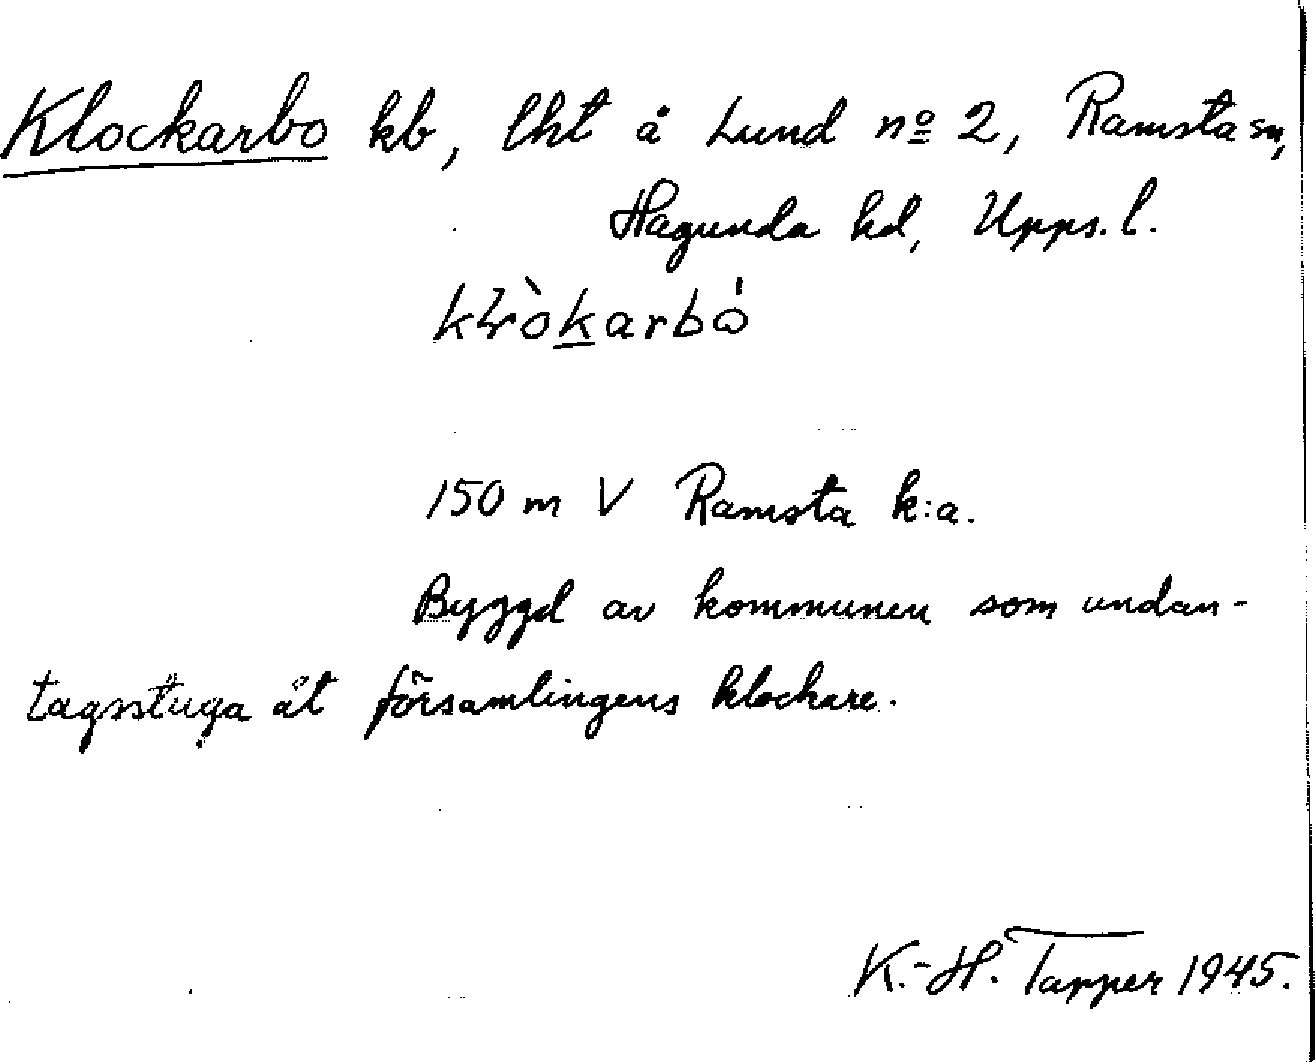 Klockarbo kb, lht å Lund nº 2, Ramsta sn,
Hagunda hd, Upps. l.
150 m V Ramsta k:a.
Byggd av kommunen som undan-
tagsstuga åt församlingens klockare.
K.-H. Tapper 1945.